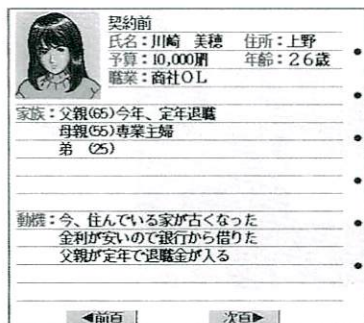 契約前
氏名:川崎 美穂 住所:上野
予算:10,000周 年齢:26歳
職業:商社OL
家族:父親(65)今年、定年退職
母親(55)専業主婦
弟 (25)
動機:今、住んでいる家が古くなった
金利が安いので銀行から借りた
父親が定年で退職金が入る
◀前頁 次頁▶